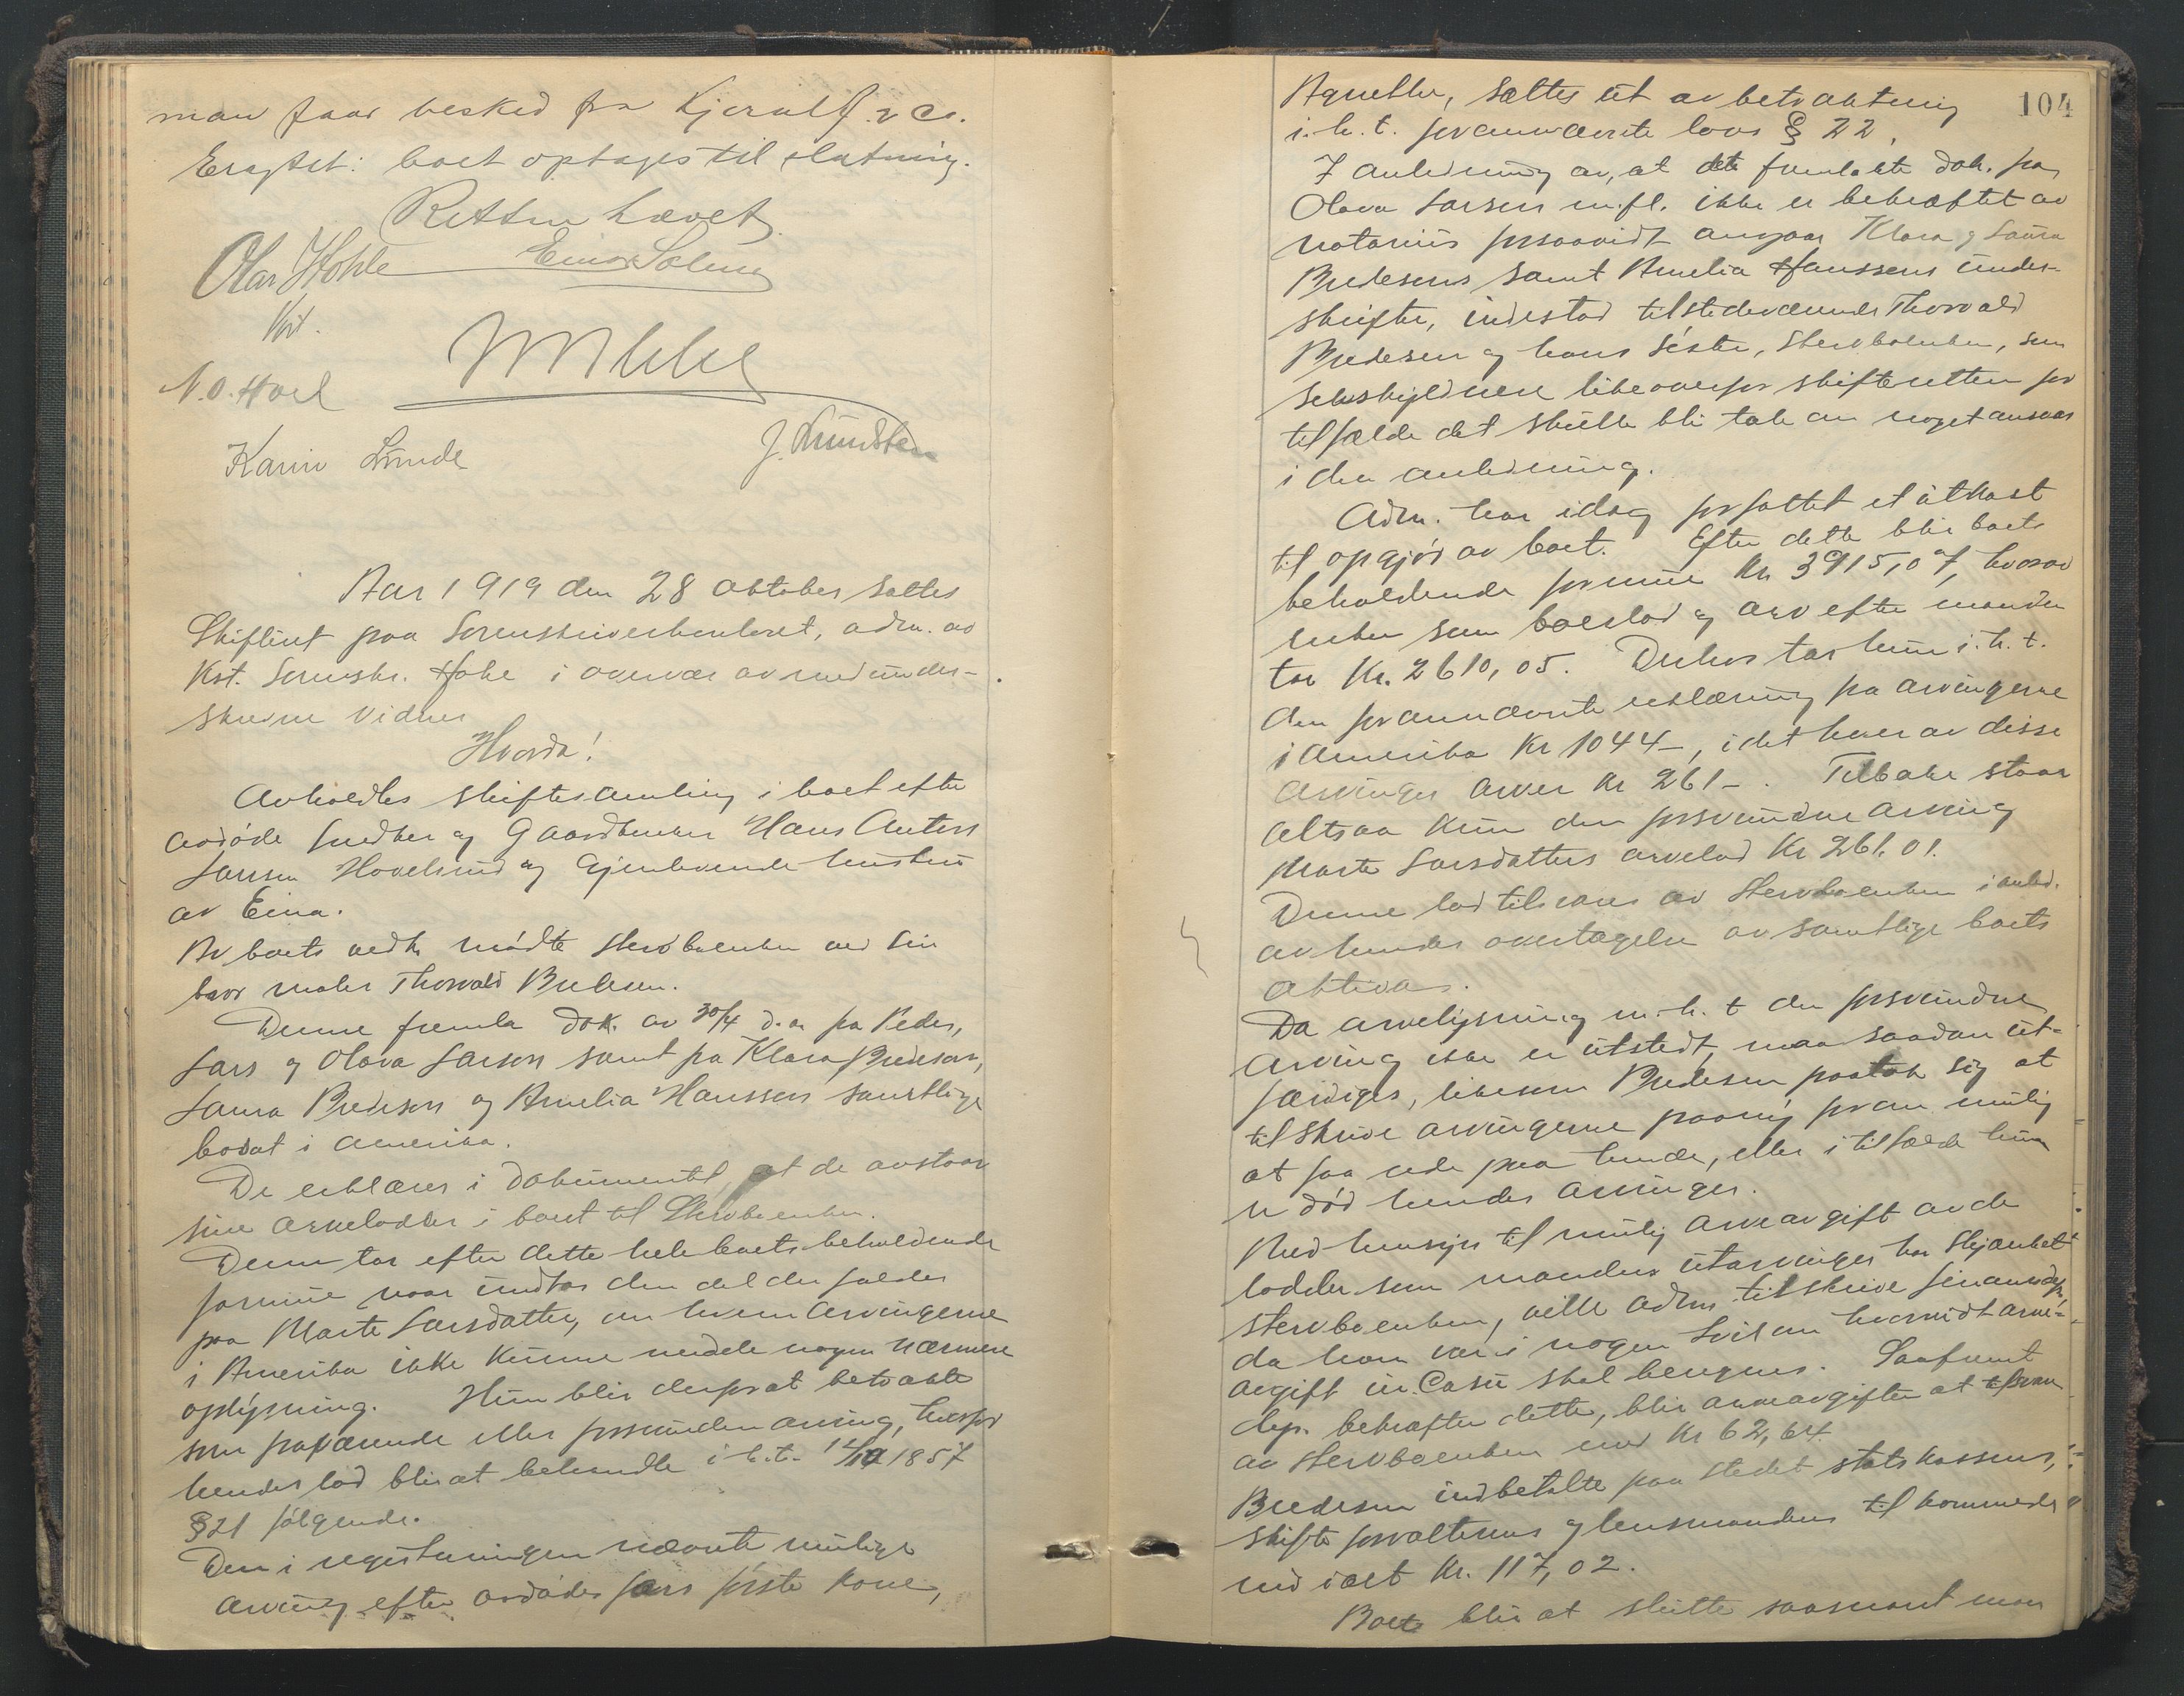 man faar besked fra Kjerulf & Co.
Eragtet: boet optages til slutning.
Retten hævet
Olav Hohle Einar Solung
Kst.
N. O. Hoel
Karin Lunde J.
Aar 1919 den 28 oktober sattes
Skifteret paa Sorenskriverkontoret, adm. av
Kst. Sorenskr. Hohle i overvær av medunder-
skrevne vidner
Hvorda!
Avholdtes skiftesamling i boet efter
avdøde snedker og Gaardbruker Hans Anton
Larsen Hovelsrud og gjenlevende hustru
av Eina.
Av boets vedk. mødte Stervboenken ved sin
bror maler Thorvald Bredesen.
Denne fremla dok. av 30/4 d. a. fra Peder,
Lars og Olava Larson samt fra Klara Bredeson,
Laura Bredeson og Amelia Hansson samtlige
bosat i Amerika.
De erklærer i dokumentet, at de avstaar
sine arvelodder i boet til Stervboenken.
Denne tar efter dette hele boets beholdende
formue naar undtas den del der falder
paa Marte Larsdatter, om hvem arvingerne
i Amerika ikke kunne meddele nogen nærmere
oplysning. Hun blir derfor at betragte
som fraværende eller forsvunden arving, hvorfor
hendes lod blir at behandle i h. t. 12/10 1857
§ 21 følgende.
Den i registreringen nævnte mulige
arving efter avdødes fars første kone,
104
Agnethe, sættes ut av betraktning
i. h. t. forannævnte lovs § 22.
I anledning av, at det fremlagte dok. fra
Olava Larsen m. fl. ikke er bekræftet av
notarius forsaavidt angaar Klara & Laura
Bredesens samt Amelia Hanssens under-
skrifter, indestod tilstedeværende Thorvald
Bredesen og hans søster, Stervboenken, som
selvskyldnere likeoverfor skifteretten for
tilfælde det skulde bli tale om noget ansvar
i den anledning.
Adm. har idag forfattet et utkast
til opgjør av boet. Efter dette blir boets
beholdende formue Kr 3915,07, hvorav
enken som boeslod og arv efter manden
tar Kr. 2610,05. Derhos tar hun i. h. t.
den forannævnte erklæring fra arvingerne
i Amerika Kr 1044 –, idet hver av disse
arvinger arver Kr 261 –. Tilbake staar
altsaa kun den forsvundne arving
Marte Larsdatters arvelod Kr 261.01.
Denne lod tilsvares av Stervboenken i anled.
av hendes overtagelse av samtlige boets
aktiva.
Da arvelysning m. h. t den forsvundne
arving ikke er utstedt, maa saadan ut-
færdiges, likesom Bredesen paatok sig at
tilskrive arvingerne paany for om mulig
at faa rede paa hende, eller i tilfælde hun
er død hendes arvinger.
Med hensyn til mulig arveavgift av de
lodder som mandens utarvinger har skjænket
stervboenken, vilde adm. tilskrive finansdep.
da han var i nogen tvil om hvorvidt arve-
avgift in casu skal beregnes. Saafremt
dep. bekræfter dette, blir arveavgiften at tilsvare
av Stervboenken med Kr 62,64.
Bredesen indbetalte paa stedet statskassens,
skifteforvalterens og lensmandens tilkommende
med ialt Kr. 117,02.
Boet blir at slutte saasnart man